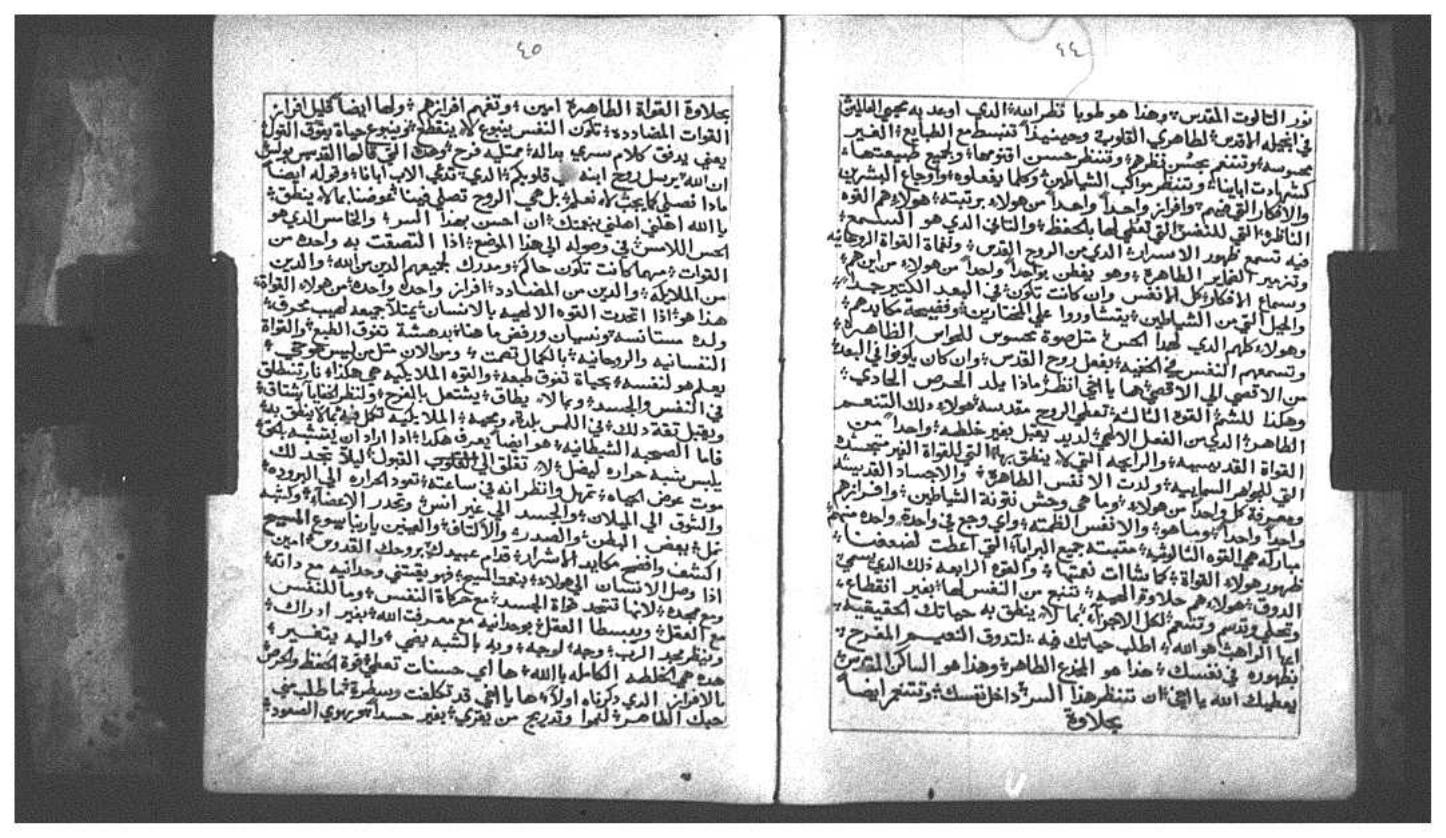 ٤٤
نور التالوت المقدس وهذا هو طوبا نظر الله الذي اوعد به محيي العالمين
في انجيله الاقدس لطاهري القلوب وحينيذا تنبسط مع الطبايع الغير
محسوسه وتتنعم بحسن نظرهم وتنظر حسن اقنومها ولجميع طبيعتها
كشهادت اباينا وتنظر مواكب الشياطين وكلما يفعلوه واوجاع البشريين
والافكار التي فيهم وافراز واحداً واحداً من هولاء برتبته هولاء هم القوه
الناظره التي للنفس التي تعطي لها بالحفظ والتاني الذي هو السمع
فيه تسمع ظهور الاسرار الذي من الروح القدس ونغاة القواة الروحانيه
وتزمير الضماير الطاهره وهو يفطن بواحداً واحداً من هولاء من اين هم
وسماع افكار كل الانفس وان كانت تكون في البعد الكتير جداً
والحيل التي من الشياطين يتشاوروا علي المختارين وفضيحة مكايدهم
وهولاء كلهم الذي لهذا الحس مثل صوة محسوس للحواس الظاهره
وتسمعهم النفس في الخفيه بفعل روح القدس وان كان يكونوا في البعد
من الاقصي الي الاقصي ها يا اخي انظر ماذا يلد الحرص الحادي
وهكذا للشم القوه التالته تعطي الروح مقدسه هولاء ذلك التنعم
الطاهر الذي من الفعل الالهي لديد يقبل بغير خلطه واحداً من
القواة القديسيه والرايحه التي لا ينطق بها التي للقواة الغير متجسده
التي للجواهر السماييه ولدت الانفس الطاهره والاجساد القديسه
ومعرفة كل واحداً من هولاء وما هي وحش نتونة الشياطين وافرازهم
واحداً واحداً وما هو والانفس الظلمه واي وجع في واحدة واحده منهم
مباركه هي القوه التالوتيه معتبه جميع البرايا التي اعطت لضعفنا
ظهور هولاء القواة كما شاات نعمتها والقوه الرابعه ذلك الذي يسمي
الدوق هولاء هم حلاوة المحبه تنبع من النفس لها بغير انقطاع
وتحلي وتدسم وتنعم لكل الاجزاء بما لا ينطق به حياتك الحقيقيه
ايها الراهب هو الله اطلب حياتك فيه لتدوق النعيم المفرح
بظهوره في نفسك هذا هو المخدع الطاهر وهذا هو الساكن المقدس
يعطيك الله يا اخي ان تنظر هذا السر داخل نفسك وتتنعم ايضا
بحلاوة
٤٥
بحلاوة القواة الطاهره امين وتفهم افرازهم ولها ايضاً قليل افراز
القوات المضادده تكون النفس ينبوع لا ينقطع وينبوع حياة يفوق القول
يعني يدفق كلام سري بداله ممتليه فرح وهذه التي قالها القديس بولس
ان الله يرسل روح ابنه في قلوبكم الذي تدعي الاب ابانا وقوله ايضاً
ماذا نصلي كما يجب لا نعلم بل هي الروح تصلي فينا غموضنا بما لا ينطق
يا الله اهلني اهلني بنعمتك ان احس بهذا السر والخامس الذي هو
الحس اللامس في وصوله الي هذا الموضع اذا التصقت به واحده من
القوات مهما كانت تكون حاكم ومدرك لجميعهم الدين من الله والدين
من الملايكه والدين من المضادد افراز واحده واحده من هولاء القواة
هذا هو اذا اتحدت القوه الالهيه بالانسان يمتلا جميعه لهيب محرق
ولده مستانسه ونسيان ورفض ما هنا بدهشة تفوق الطبع والقواة
النفسانيه والروحانيه بالكمال تصمت ومن الان مثل من ليس
يعلم هو لنفسه بحياة تفوق طبعه والقوه الملايكيه هي هكذا نار تنطلق
في النفس والجسد وبما لا يطاق يشتعل بالفرح ولنظر الخفايا يشتاق
ويقبل ثقة ذلك في اللمس بلده ومحبه الملايكيه تكل فيه بما لا ينطق به
فاما الصحبه الشيطانيه هو ايضاً يعرف هكذا اذا اراد ان يتشبه بالحق
يلبس شبه حراره ليضل لا تغلق الي القلوب القبول ليلاً تجد لك
موت عوض الحياه تمهل وانظر انه في ساعته تعود الحراره الي البروده
والشوق الي الميلان والجسد الي غير انس وتخدر الاعضاء وكشبه
نمل بعض البطن والصدر والاكتاف والعينين يا ربنا يسوع المسيح
اكشف وافضح مكايد الاشرار قدام عبيدك بروحك القدوس امين
اذا وصل الانسان الي هولاء بنعمة المسيح فهو يقتني وحدانيه مع داته
ومع مجده لانها تتحد قواة الجسد مع حركاة النفس وما للنفس
مع العقل ويبسطا العقل بوحدانيه مع معرفت الله بغير ادراك
وينظر مجد الرب وجه لوجه وبه بالشبه يضي واليه يتغير
هده هي الخلطه الكامله بالله ها اي حسنات تعطي قوة الحفظ والحرص
بالافراز الذي دكرناه اولاً ها يا اخي قد تكلفت وسطرة ما طلب مني
حبك الطاهر لنموا وتدريج من يقري بغير حسد ويهوي الصعود